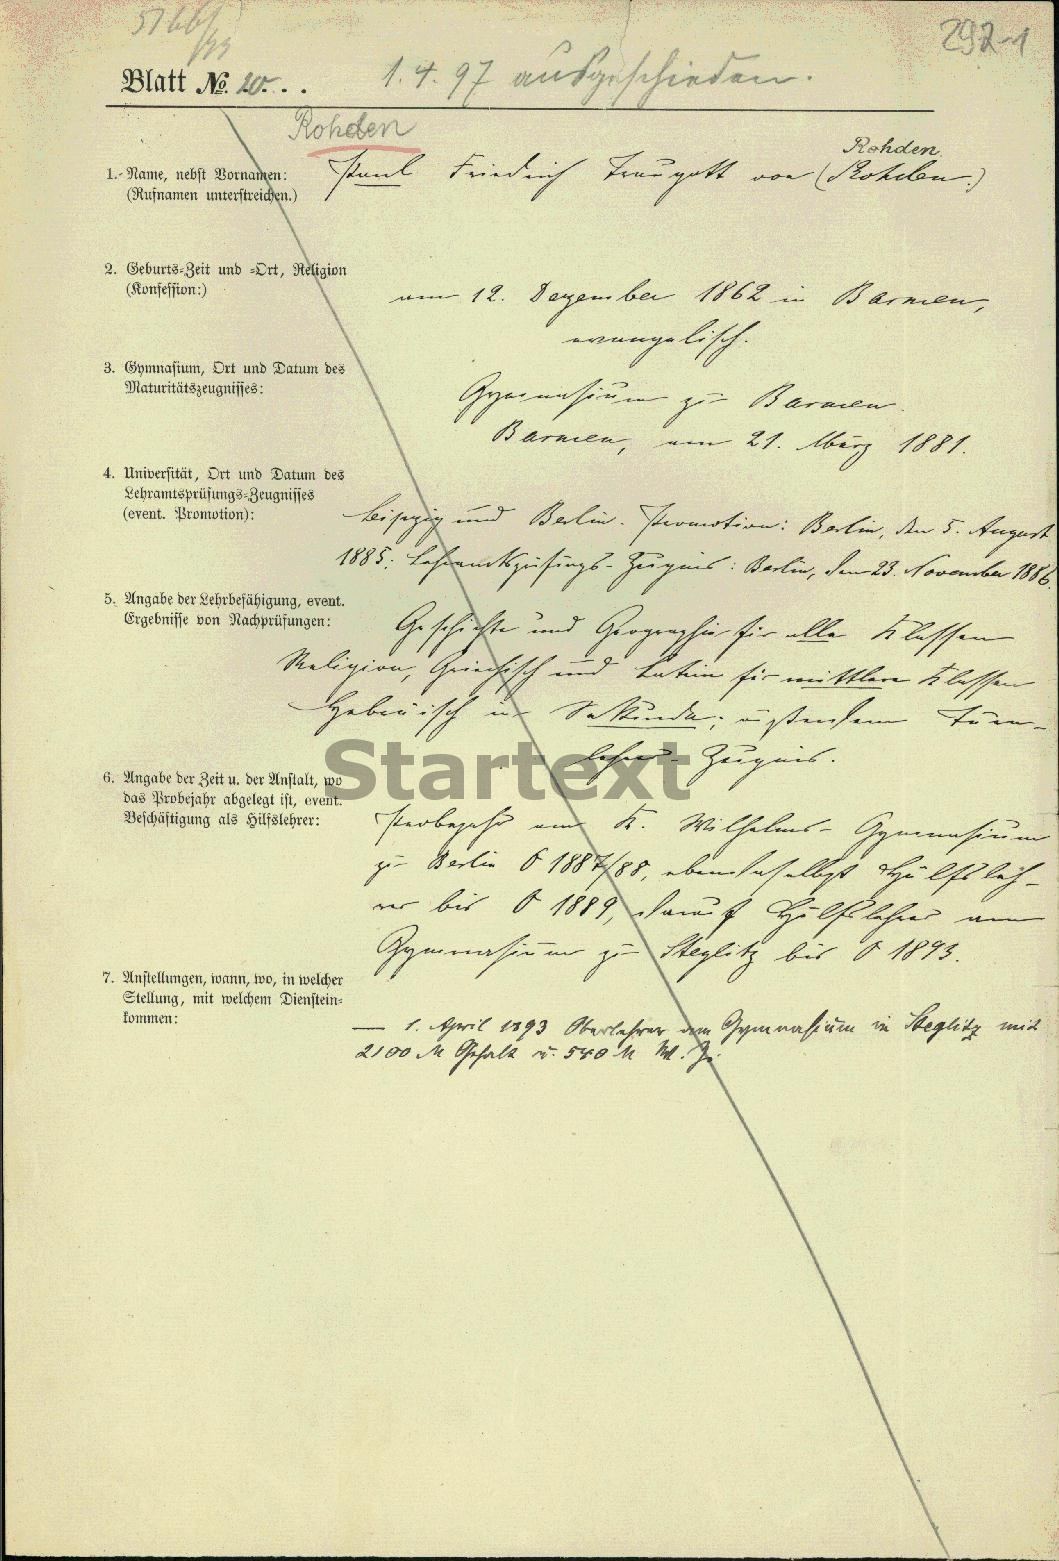 5166/93
292-1
Blatt No. 20. . .
1. 4. 97 ausgeschieden.
Rohden
Rohden
1. Name, nebst Vornamen:
(Rufnamen unterstreichen.)
Paul Friedrich Traugott von (Rohden.)
2. Geburts-Zeit und -Ort, Religion
(Konfession:)
am 12. Dezember 1862 in Barmen,
evangelisch.
3. Gymnasium, Ort und Datum des
Maturitätszeugnisses:
Gymnasium zu Barmen.
Barmen, am 21. März 1881.
4. Universität, Ort und Datum des
Lehramtsprüfungs-Zeugnisses
(event. Promotion):
Leipzig und Berlin. Promotion: Berlin, den 5. August
1885; Lehramtsprüfungs-Zeugnis: Berlin, den 23. November 1886.
5. Angabe der Lehrbefähigung, event.
Ergebnisse von Nachprüfungen:
Geschichte und Geographie für alle Klassen
Religion, Griechisch und Latein für mittlere Klassen
Hebräisch in Sekunda; außerdem Turn-
lehrer-Zeugnis.
Startext
6. Angabe der Zeit u. der Anstalt, wo
das Probejahr abgelegt ist, event.
Beschäftigung als Hilfslehrer:
Probejahr am K. Wilhelms-Gymnasium
zu Berlin O 1887/88, ebendaselbst Hülfsleh-
rer bis O 1889, darauf Hülfslehrer am
Gymnasium zu Steglitz bis O 1893.
7. Anstellungen, wann, wo, in welcher
Stellung, mit welchem Dienstein-
kommen:
— 1. April 1893 Oberlehrer am Gymnasium in Steglitz mit
2100 M Gehalt u. 540 M W. Z.